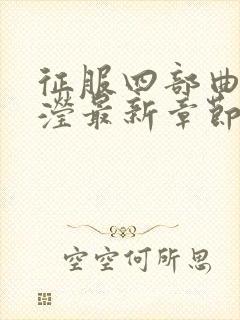 征服四部曲
滢最新章节
空空何所思